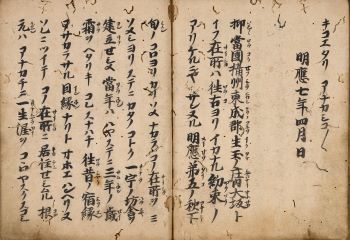 キコエタリ アナカシコ〱
明應七年四月 日
抑當國攝州東成郡生玉之庄内大坂ト
イフ在所ハ往古ヨリイカナル約束ノ
アリケルニヤサンヌル明應第五ノ秋下
旬ノコロヨリカリソメナカラコノ在所ヲミ
ソメシヨリステニカタノコトク一宇ノ坊舎ヲ
建立セシメ當年ハハヤステニ三年ノ歳
霜ヲヘタリキコレスナハチ往昔ノ宿縁
アサカラサル因縁ナリトオホエハンヘリヌ
ソレニツイテコノ在所ニ居住セシムル根
元ハアナカチニ一生涯ヲコヽロヤスクスコシ